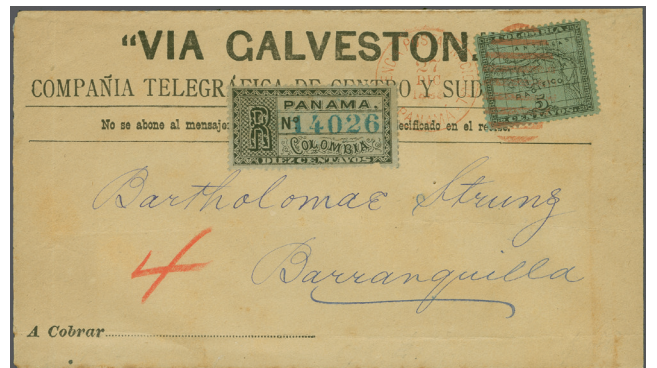 "VIA GALVESTON."
COMPAÑIA TELEGRÁFICA DE CENTRO Y SUD
No se abone al mensaje ecificado en el
PANAMA.
R No 14026
COLOMBIA
DIEZ CENTAVOS
COLOMBIA
PACIFICO
5
CENTAVOS
Bartholomae Strung
4
Barranquilla
A Cobrar